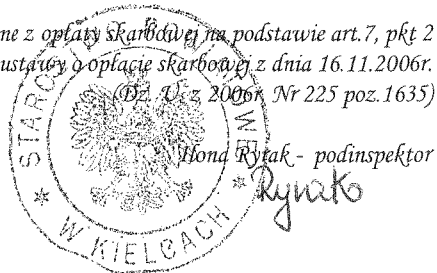 ne z opłaty skarbowej na podstawie art.7, pkt 2
ustawy o opłacie skarbowej z dnia 16.11.2006r.
(Dz. U. z 2006r. Nr 225 poz.1635)
Ilona Rytak - podinspektor
STAROSTWO POWIATOWE
W KIELCACH